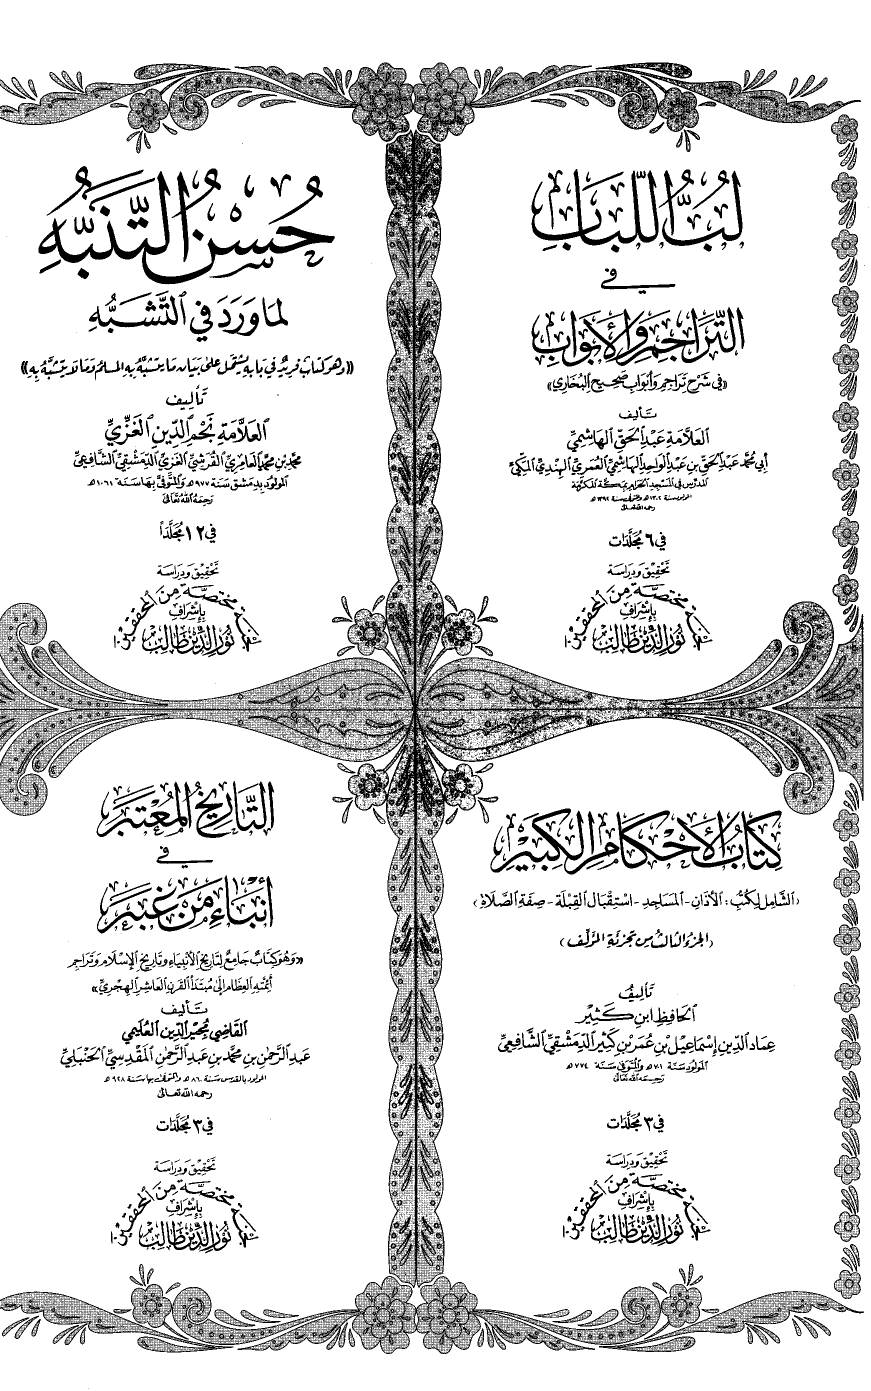 لُبُّ اللُّبَابِ
في
التَّرَاجِمِ وَالأَبْوَابِ
«في شَرْحِ تَرَاجِمِ وَأَبْوَابِ صَحِيحِ البُخَارِي»
تَأليف
العَلَّامَةِ عَبْدِ الحَقِّ الهَاشِمِيِّ
أَبي مُحَمَّد عَبْدِ الحَقِّ بنِ عَبْدِ الوَاحِدِ الهَاشِمِيِّ العُمَرِيِّ الهِنْدِيِّ المَكِّيِّ
المُدَرِّس في المَسْجِدِ الحَرَامِ بِمَكَّةَ المُكَرَّمَة
المولود سنة ١٣٠٢ه والمتوفى سنة ١٣٩٢ه
رحمه الله تعالى
في ٦ مُجَلَّدَات
تَحْقِيق وَدِرَاسَة
لجنة مختصّة مِنَ المحققين
بإشراف
نُور الدِّين طَالِب
حُسْنُ التَّنَبُّهِ
لِمَا وَرَدَ فِي التَّشَبُّهِ
«وَهُوَ كِتَابٌ فَرِيدٌ في بَابِهِ يَشْتَمِلُ عَلى بَيَانِ مَا يَتَشَبَّهُ بِهِ المُسْلِمُ وَمَا لَا يَتَشَبَّهُ بِهِ»
تَأليف
العَلَّامَةِ نَجْمِ الدِّينِ الغَزِّيِّ
مُحَمَّد بنِ مُحَمَّدٍ العَامِرِيِّ القُرَشِيِّ الغَزِّيِّ الدِّمَشْقِيِّ الشَّافِعِيِّ
المَولُودِ بِدِمَشْقَ سَنَة ٩٧٧ه وَالمُتَوَفَّى بِهَا سَنَة ١٠٦١ه
رَحِمَهُ اللهُ تَعَالى
في ١٢ مُجَلَّداً
تَحْقِيق وَدِرَاسَة
لجنة مختصّة مِنَ المحققين
بإشراف
نُور الدِّين طَالِب
كِتَابُ الأَحْكَامِ الكَبِيرِ
(الشَّامِلِ لِكُتُبِ: الأَذَانِ - المَسَاجِدِ - اسْتِقْبَالِ القِبْلَة - صِفَةِ الصَّلَاةِ)
(الجُزء الثَّالِث من تجزئة المؤلِّف)
تَأليفُ
الحَافِظِ ابنِ كَثِير
عِمَاد الدِّينِ إِسْمَاعِيلَ بْنِ عُمَرَ بْنِ كَثِيرٍ الدِّمَشْقِيِّ الشَّافِعِيِّ
المَولُودِ سَنَة ٧٠١ه وَالمُتَوَفَّى سَنَة ٧٧٤ه
رَحِمَهُ اللهُ تَعَالى
في ٣ مُجَلَّدَات
تَحْقِيق وَدِرَاسَة
لجنة مختصّة مِنَ المحققين
بإشراف
نُور الدِّين طَالِب
التَّارِيخُ المُعْتَبَر
في
أَنْبَاءِ مَنْ غَبَر
«وَهُوَ كِتَابٌ جَامِعٌ لِتَارِيخِ الأَنْبِيَاءِ وَتَارِيخِ الإِسْلَامِ وَتَرَاجِمِ
أَئِمَّتِهِ العِظَامِ إِلى مُبْتَدَأِ القَرْنِ العَاشِرِ الهِجْرِيِّ»
تَأليف
القَاضِي مُجِيرِ الدِّينِ العُلَيْمِي
عَبْدِ الرَّحْمٰنِ بنِ مُحَمَّد بنِ عَبْدِ الرَّحْمٰنِ المَقْدِسِيِّ الحَنْبَلِيِّ
المولود بالقدس سنة ٨٦٠ه والمتوفى بها سنة ٩٢٨ه
رحمه الله تعالى
في ٣ مُجَلَّدَات
تَحْقِيق وَدِرَاسَة
لجنة مختصّة مِنَ المحققين
بإشراف
نُور الدِّين طَالِب